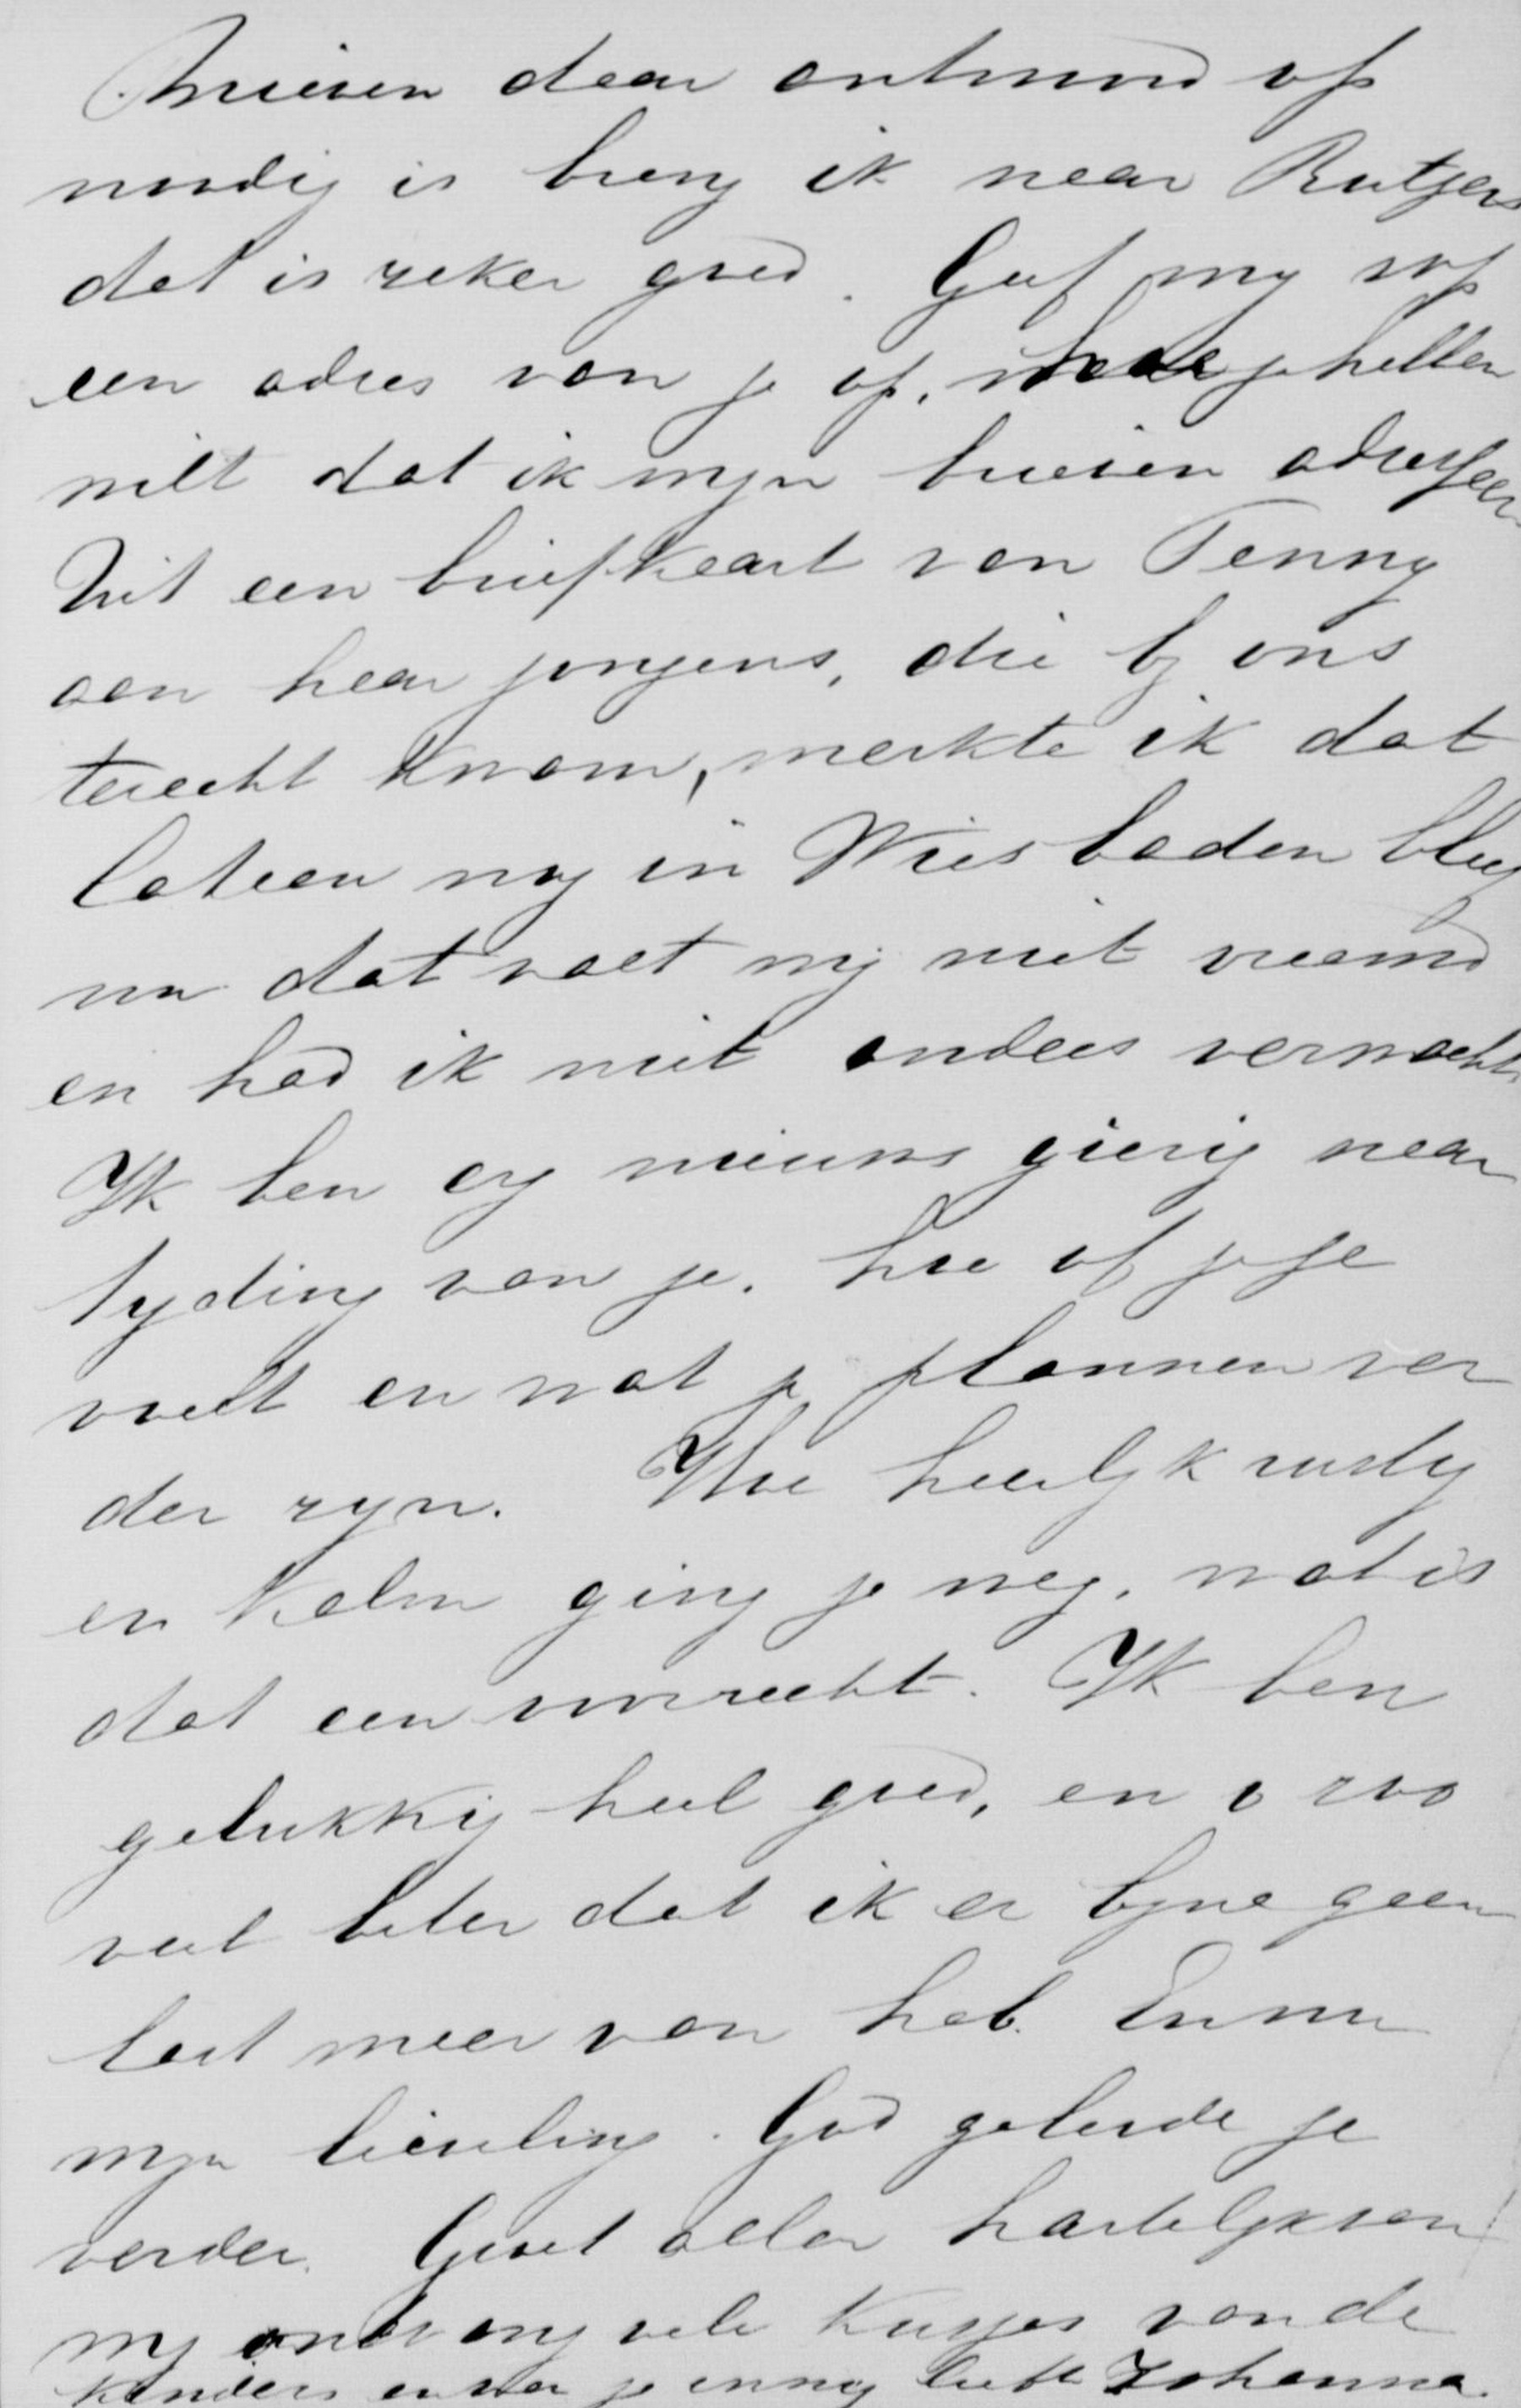 Brieven daar antwoord op
noodig is breng ik naar Rutgers
dat is zeker goed. Geef my svp
een adres van je op, waar je hebben
wilt dat ik myn brieven adresseer
Uit een briefkaart van Jenny
aan haar jongens, die by ons
terecht kwam, merkte ik dat
Cateau nog in Wiesbaden bleef
nu dat valt mij niet vreemd
en had ik niet anders verwacht
Ik ben erg nieuws gierig naar
tyding van je. hoe of je je
voelt en wat je plannen ver
der zyn. Hoe heerlyk rustig
en kalm ging je weg, wat is
dat een voorrecht. Ik ben
gelukkig heel goed, en zoo
veel beter dat ik er byna geen
last meer van heb. En nu
myn lieveling. God geleide je
verder. Groet allen hartelyk van
my ontvang vele kusjes van de
kinders en van je innig liefh Johanna.